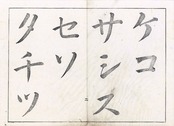 ケコ
サシス
セソ
タチツ